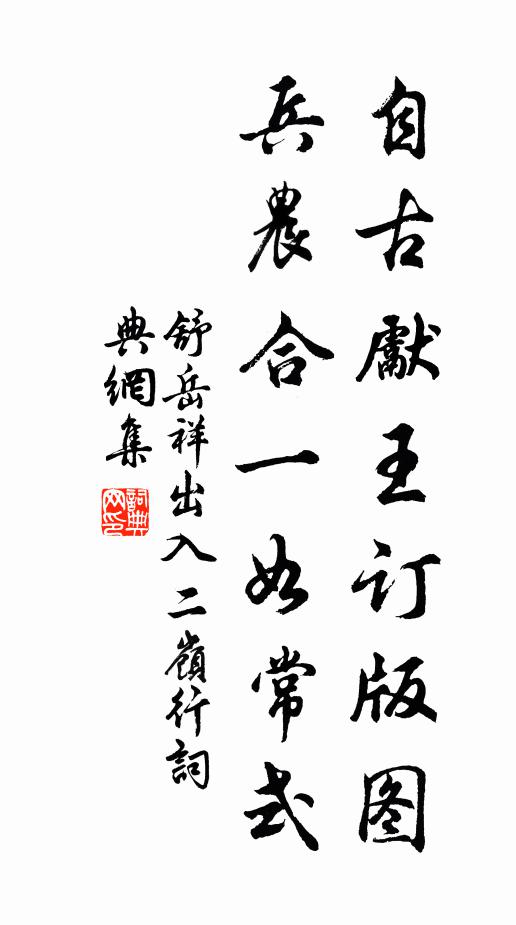 自古獻王订版图
兵農合一如常式
舒岳祥出入二嶺行詞
典網集
詞典网印